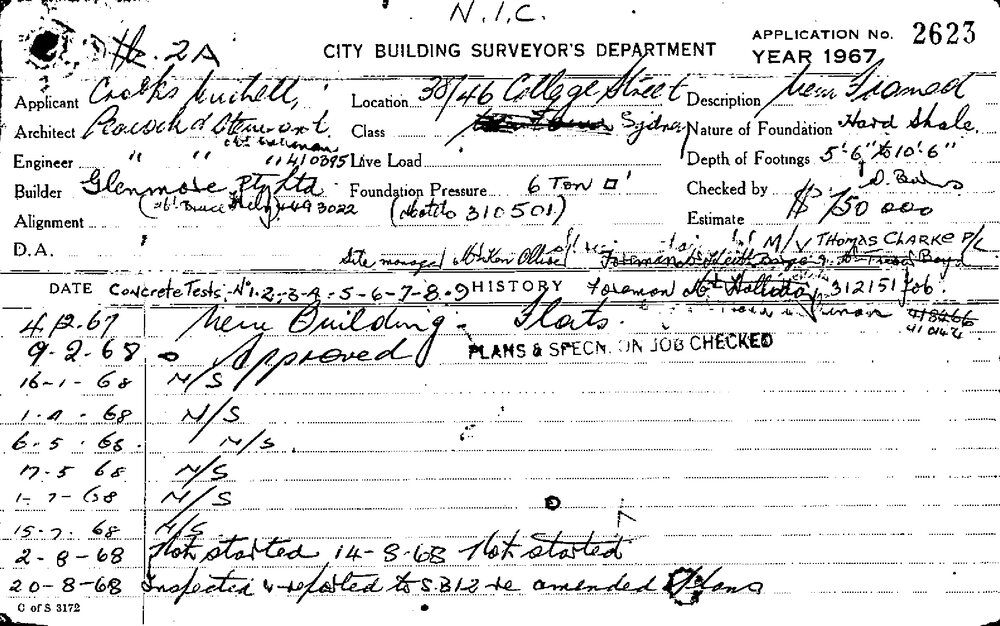 N.I.C.
2A
CITY BUILDING SURVEYOR'S DEPARTMENT
APPLICATION No. 2623
YEAR 1967
Applicant Crooks Michell, Location 38/46 College Street Description New Framed
Architect Peacock & Stewart. Class Sydney Nature of Foundation Hard Shale.
Engineer " " " 410395 Live Load Depth of Footings 5'-6" to 10'-6"
Builder Glenmore Pty Ltd Foundation Pressure 6 Ton □' Checked by
(Mr. Bruce 449 3022 310501) Estimate $ 750 000
Alignment
D.A. Site manager M/V THOMAS CLARKE P/L
DATE Concrete Tests. No 1-2-3-4-5-6-7-8-9 HISTORY Foreman Mr 312151 Job.
4.12.67 New Building - Flats.
9-2-68 Approved PLANS & SPECN. ON JOB CHECKED
16-1-68 N/S
1-4-68 N/S
6-5-68. N/S.
17-5 68 N/S
1-7-68 N/S
15-7.68 N/S
2-8-68 Not started 14-8-68 Not started
20-8-68 Inspected & reported to S.B12 re amended Plans
C of S 3172